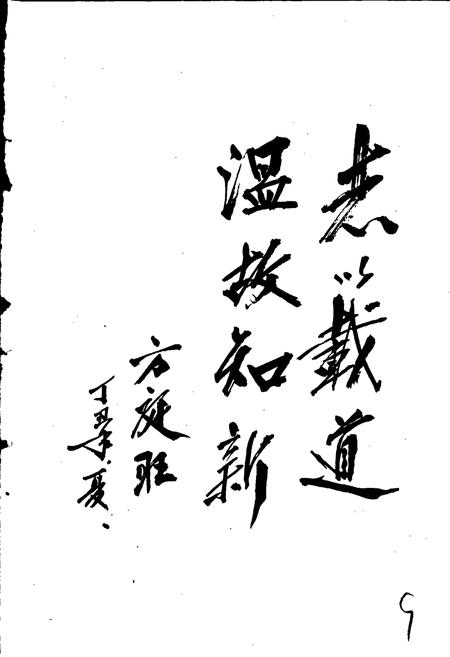 志以載道
温故知新
方庭旺
丁丑年夏
9